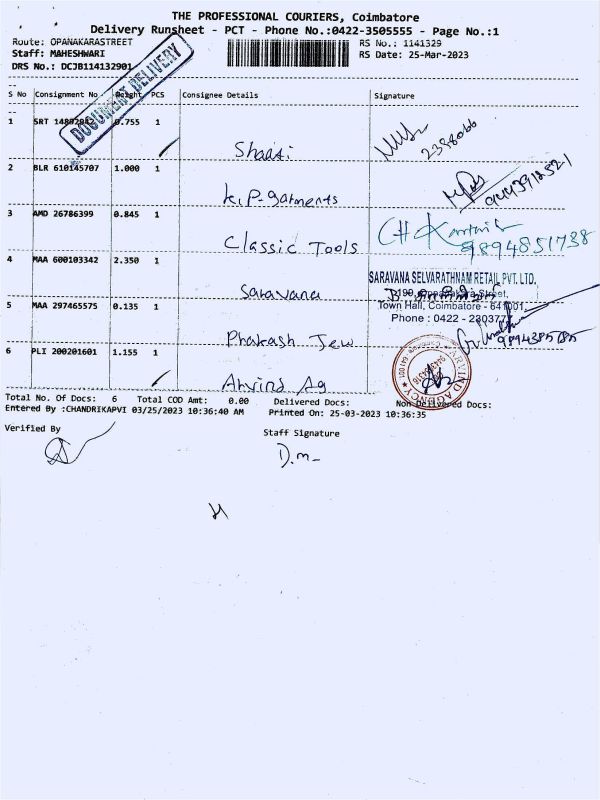 THE PROFESSIONAL COURIERS, Coimbatore
Delivery Runsheet - PCT - Phone No.:0422-3505555 - Page No.:1
Route: OPANAKARASTREET
RS No.: 1141329
Staff: MAHESHWARI
RS Date: 25-Mar-2023
DRS No.: DCJB114132901
DOCUMENT DELIVERY
S No Consignment No Weight PCS Consignee Details Signature
1 SRT 0.755 1
2338066
2 BLR 610145707 1.000 1 K.P-garments
3 AMD 26786399 0.845 1 Classic Tools
9894851738
4 MAA 600103342 2.350 1 Saravana
SARAVANA SELVARATHNAM RETAIL PVT. LTD.
Street,
Town Hall, Coimbatore - 641001
Phone : 0422 -
5 MAA 297465575 0.135 1 Prakash Jew
6 PLI 200201601 1.155 1 Arvind Ag
ARVIND AGENCY
Total No. Of Docs: 6 Total COD Amt: 0.00 Delivered Docs: Non Delivered Docs:
Entered By :CHANDRIKAPVI 03/25/2023 10:36:40 AM Printed On: 25-03-2023 10:36:35
Verified By
Staff Signature
D.m